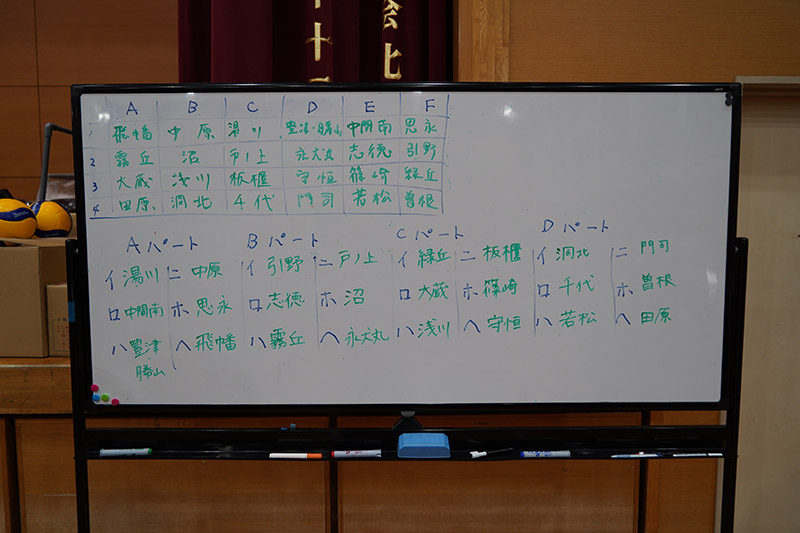 十 会七
A B C D E F
1 飛幡 中原 湯川 豊津・勝山 中間南 思永
2 霧丘 沼 戸ノ上 永犬丸 志徳 引野
3 大蔵 浅川 板櫃 守恒 篠崎 緑丘
4 田原 洞北 千代 門司 若松 曽根
Aパート Bパート Cパート Dパート
イ 湯川 ニ 中原 イ 引野 ニ 戸ノ上 イ 緑丘 ニ 板櫃 イ 洞北 ニ 門司
ロ 中間南 ホ 思永 ロ 志徳 ホ 沼 ロ 大蔵 ホ 篠崎 ロ 千代 ホ 曽根
ハ 豊津 ヘ 飛幡 ハ 霧丘 ヘ 永犬丸 ハ 浅川 ヘ 守恒 ハ 若松 ヘ 田原
勝山